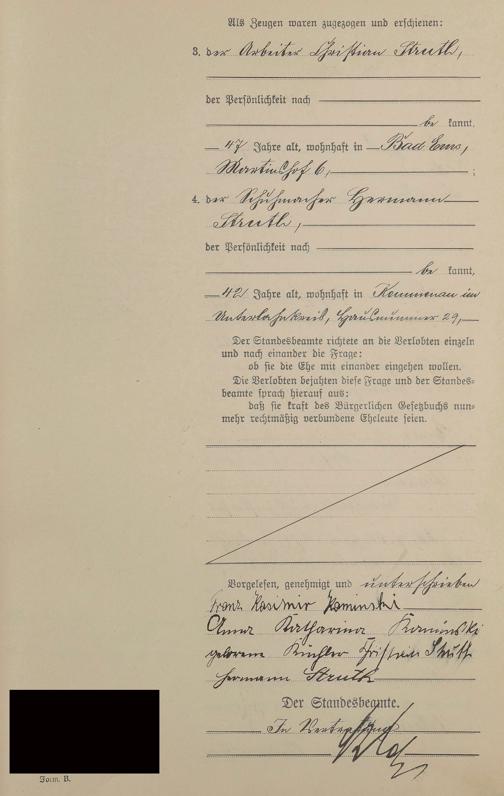 Als Zeugen waren zugezogen und erschienen:
3. der Arbeiter Christian Struth,
der Persönlichkeit nach
be kannt,
47 Jahre alt, wohnhaft in Bad Ems,
Martinshof 6, ;
4. der Schuhmacher Hermann
Struth,
der Persönlichkeit nach
be kannt,
42 Jahre alt, wohnhaft in Kemmenau im
Unterlahnkreis, Hausnummer 29,
Der Standesbeamte richtete an die Verlobten einzeln
und nach einander die Frage:
ob sie die Ehe mit einander eingehen wollen.
Die Verlobten bejahten diese Frage und der Standes-
beamte sprach hierauf aus:
daß sie kraft des Bürgerlichen Gesetzbuchs nun-
mehr rechtmäßig verbundene Eheleute seien.
Vorgelesen, genehmigt und unterschrieben
Franz Kasimir Kaminski
Anna Katharina Kaminski
geborene Küchler Christian Struth
Hermann Struth
Der Standesbeamte.
In Vertretung
Form. B.